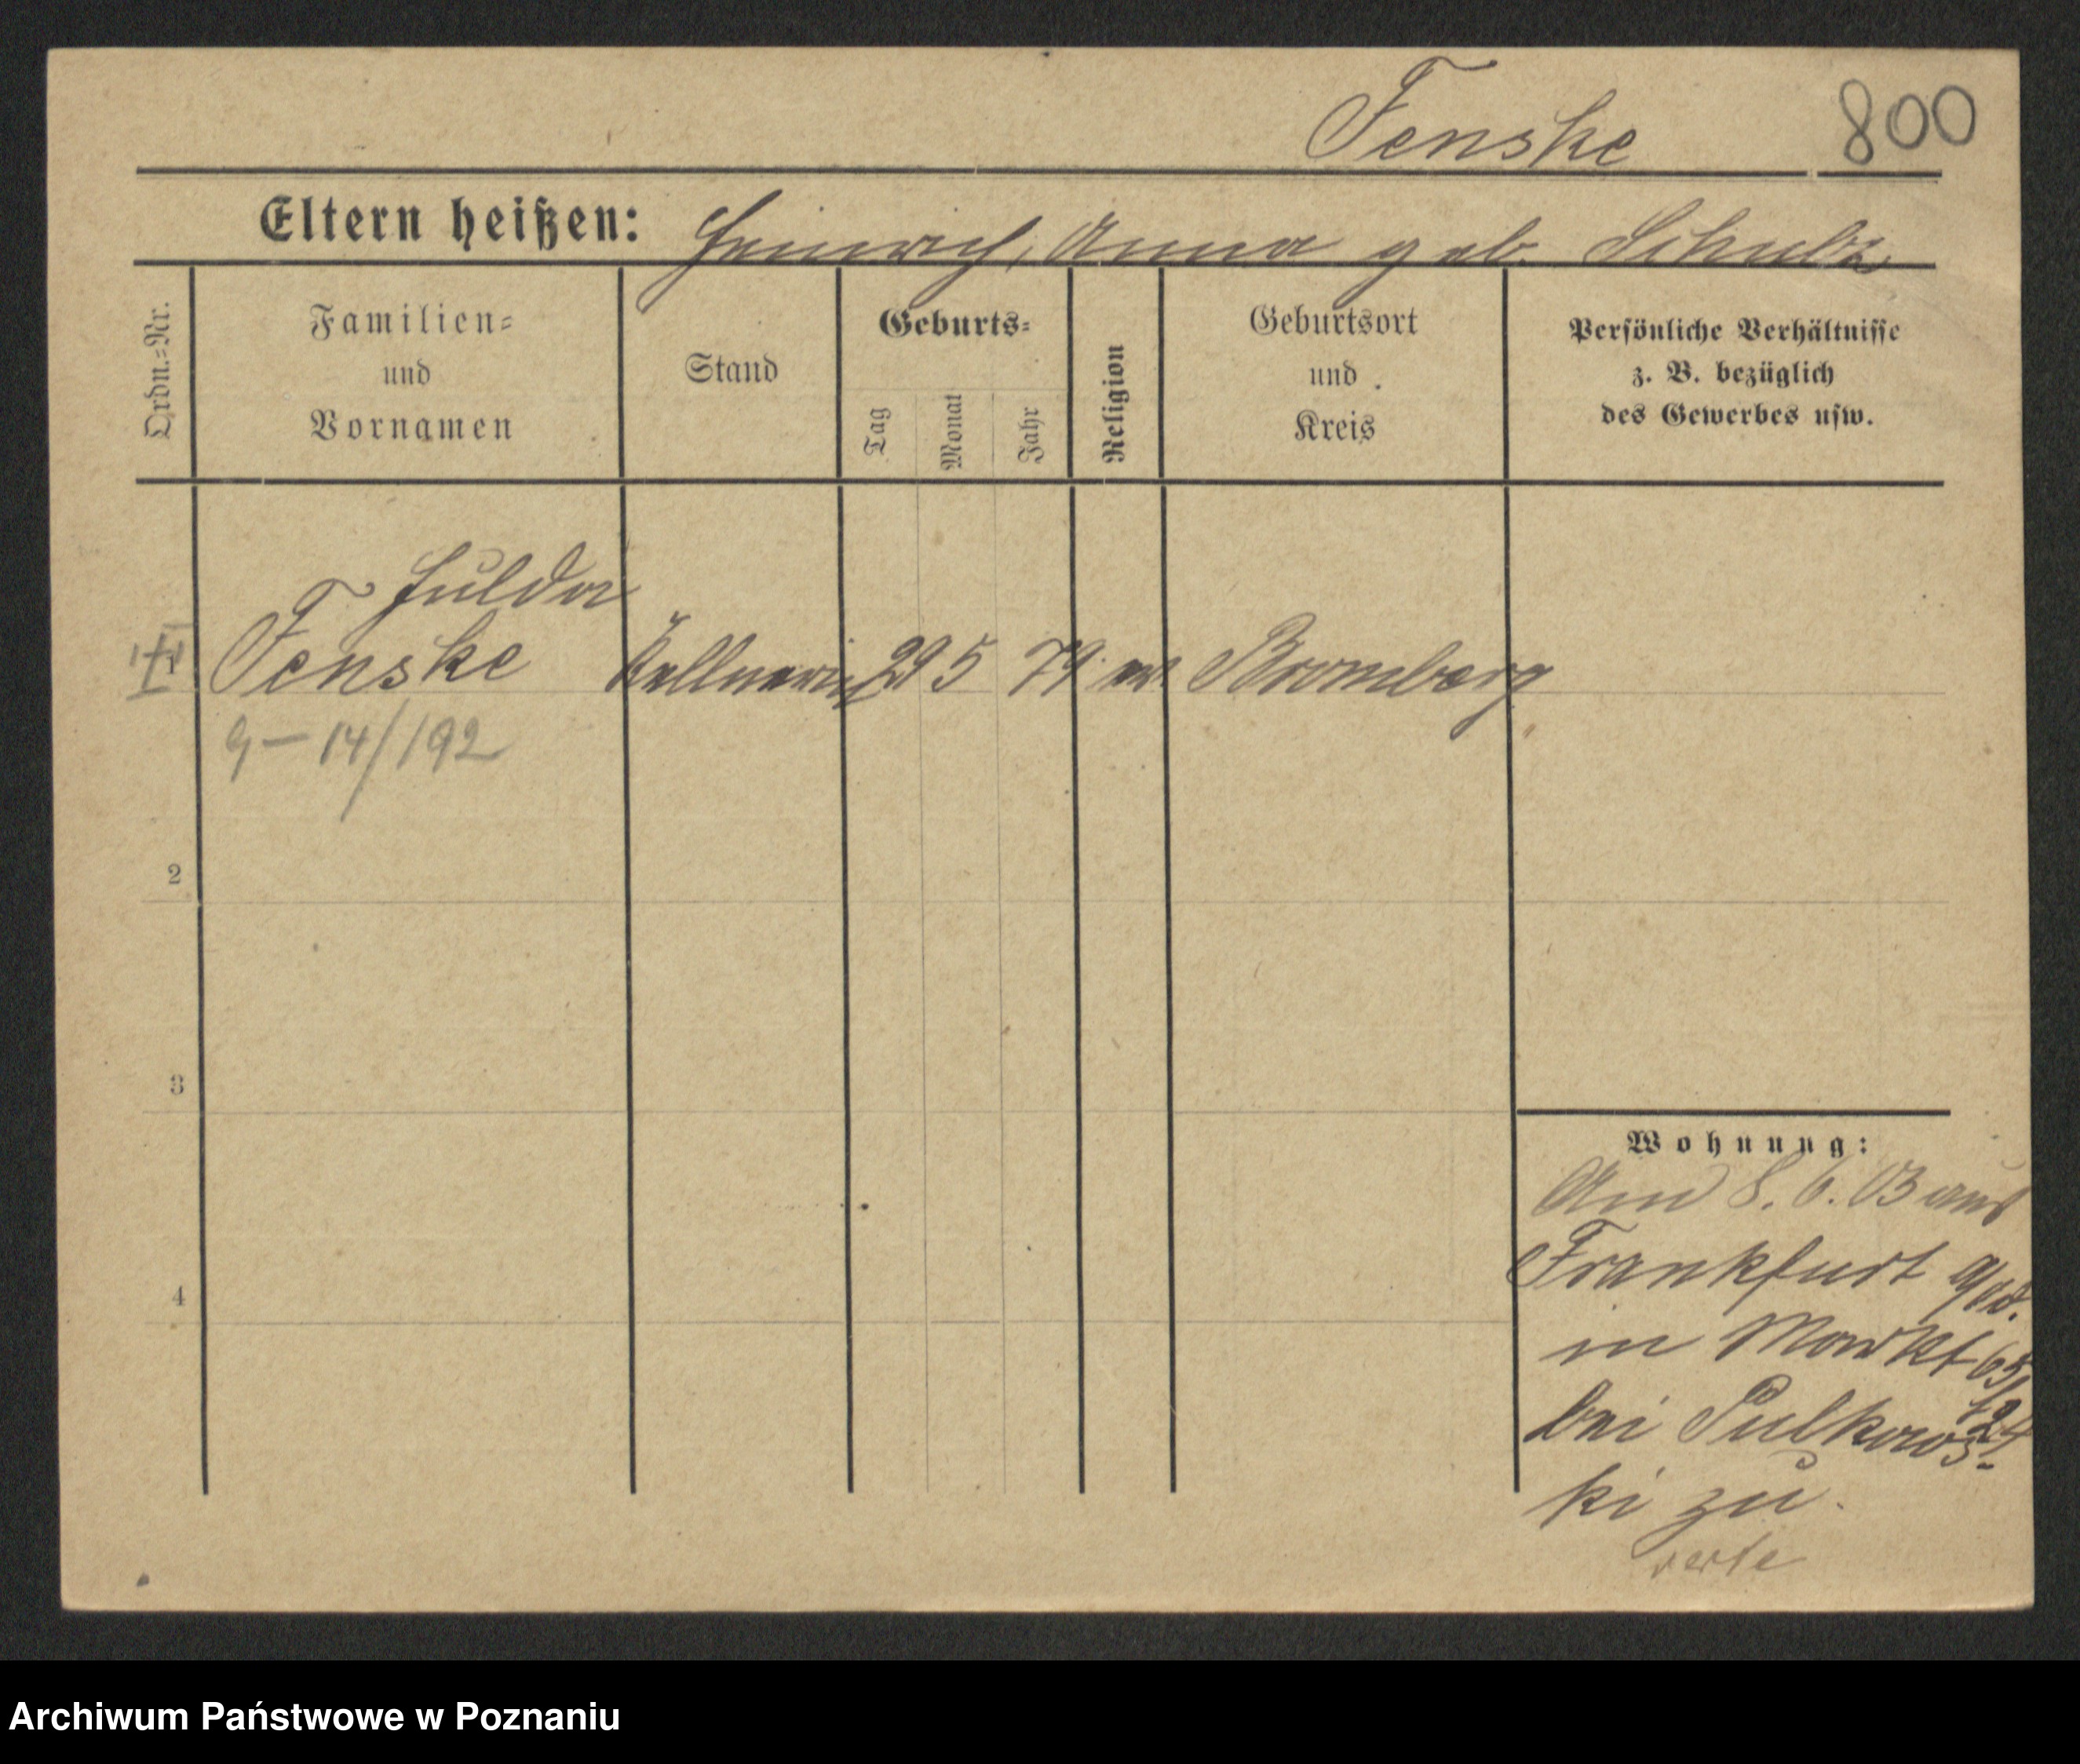 Fenske 800
Eltern heißen: Heinrich, Anna geb. Schulz
Ordn.=Nr.
Familien=
und
Vornamen
Stand
Geburts=
Tag
Monat
Jahr
Religion
Geburtsort
und
Kreis
Persönliche Verhältnisse
z. B. bezüglich
des Gewerbes usw.
Hulda
1 Fenske Kellnerin 29 5 79 ev. Bromberg
9-14/192
2
3
4
Wohnung:
Am 8. 6. 03 aus
Frankfurt a/Od.
in Markt 65/
bei Pulkows-
ki zu.
verte
Archiwum Państwowe w Poznaniu